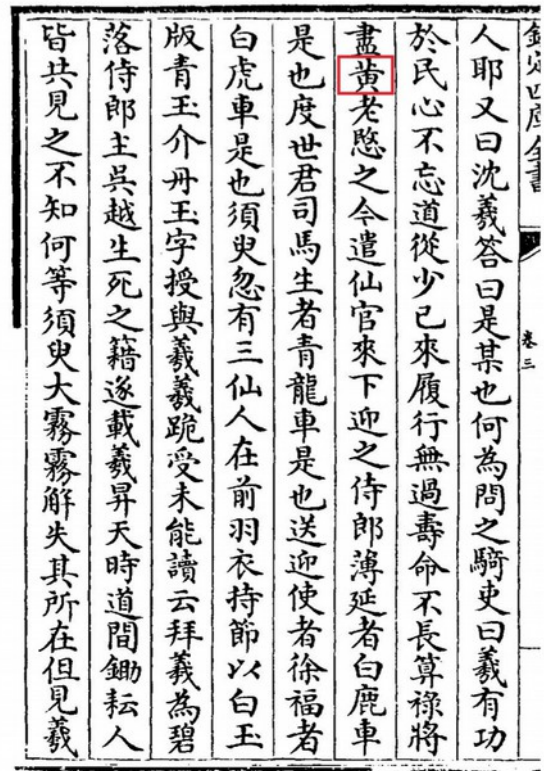 欽定四庫全書
卷三
人耶又曰沈羲答曰是某也何為問之騎吏曰羲有功
於民心不忘道從少已來履行無過壽命不長算祿將
盡黄老愍之今遣仙官來下迎之侍郎薄延者白鹿車
是也度世君司馬生者青龍車是也送迎使者徐福者
白虎車是也須臾忽有三仙人在前羽衣持節以白玉
版青玉介丹玉字授與羲羲跪受未能讀云拜羲為碧
落侍郎主吳越生死之籍遂載羲昇天時道間鋤耘人
皆共見之不知何等須臾大霧霧解失其所在但見羲